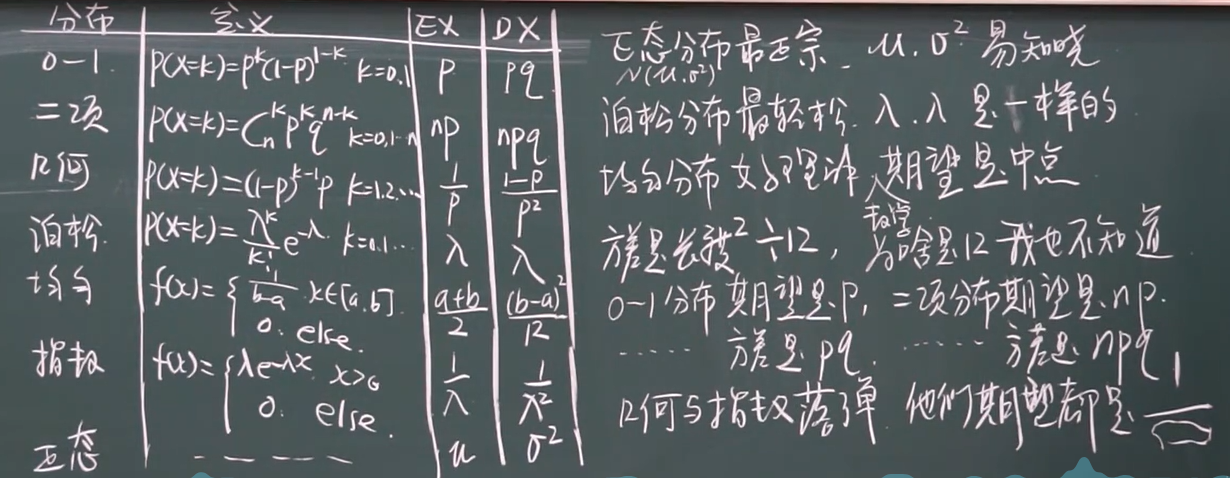 分布 定义 EX DX
0-1 P(X=k)=p^k(1-p)^{1-k} k=0,1 p pq
二项 P(X=k)=C_n^k p^k q^{n-k} k=0,1…n np npq
几何 P(X=k)=(1-p)^{k-1}p k=1,2,… 1/p (1-p)/p²
泊松 P(X=k)=λ^k/k! e^{-λ} k=0,1… λ λ
均匀 f(x)={ 1/(b-a) x∈[a,b] (a+b)/2 (b-a)²/12
0. else.
指数 f(x)={ λe^{-λx} x>0 1/λ 1/λ²
0. else.
正态 ----- μ σ²
正态分布最正宗 μ.σ² 易知晓
N(μ.σ²)
泊松分布最轻松. λ.λ 是一样的
均匀分布 期望是中点
方差是长度²÷12, 为啥是12 我也不知道
数学
0-1分布期望是p, 二项分布期望是np.
…… 方差是pq. …… 方差是npq
几何与指数 他们期望都是 1